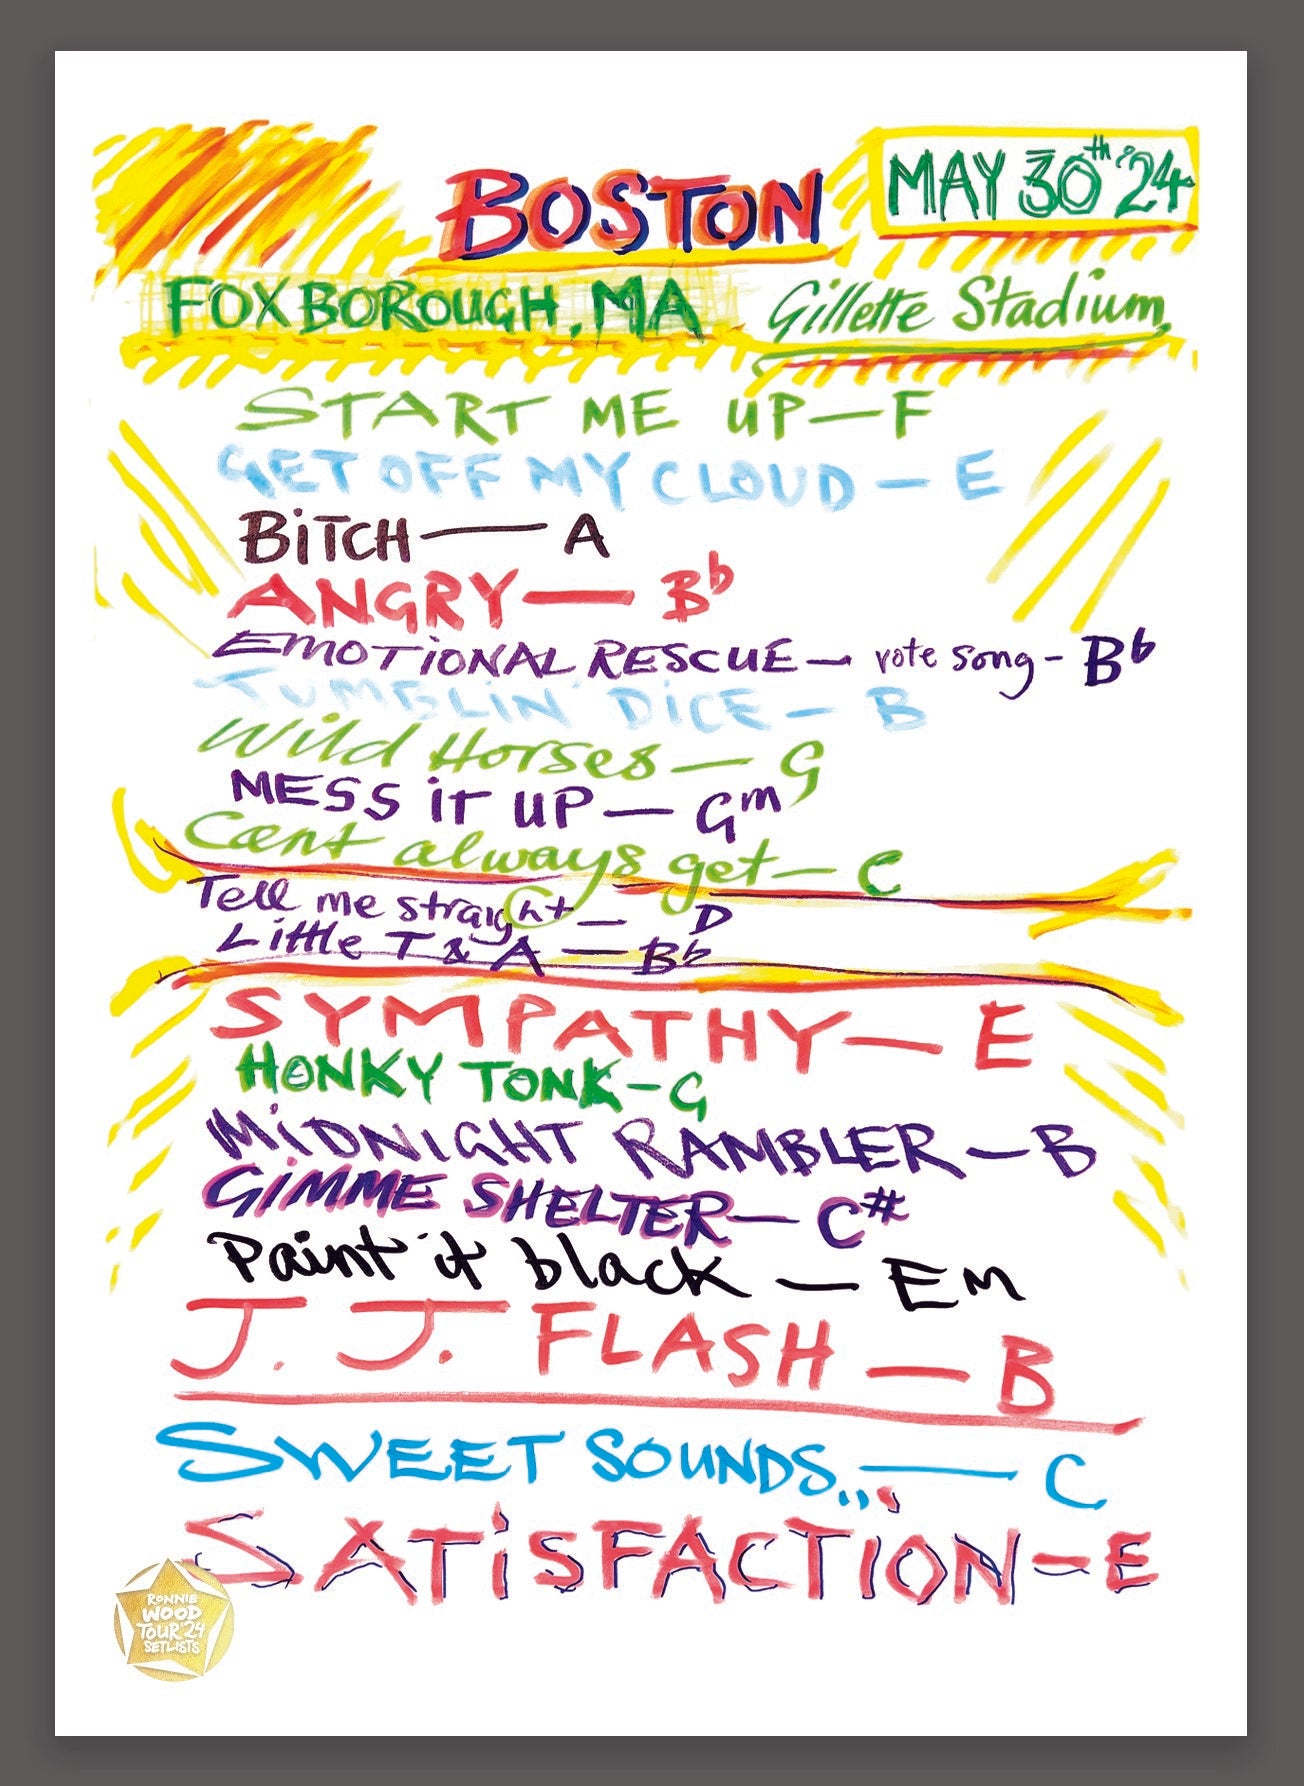 BOSTON
MAY 30th '24
FOXBOROUGH, MA
Gillette Stadium
START ME UP—F
GET OFF MY CLOUD — E
BiTCH — A
ANGRY — Bb
EMOTIONAL RESCUE — vote song - Bb
TUMBLIN' DiCE — B
Wild Horses — G
MESS iT UP — Gm
Can't always get — C
Tell me straight — D
Little T & A — Bb
SYMPATHY — E
HONKY TONK - G
MiDNIGHT RAMBLER — B
GiMME SHELTER — C#
Paint it black — Em
J. J. FLASH — B
SWEET SOUNDS... — C
SATiSFACTION - E
RONNIE
WOOD
TOUR '24
SETLISTS